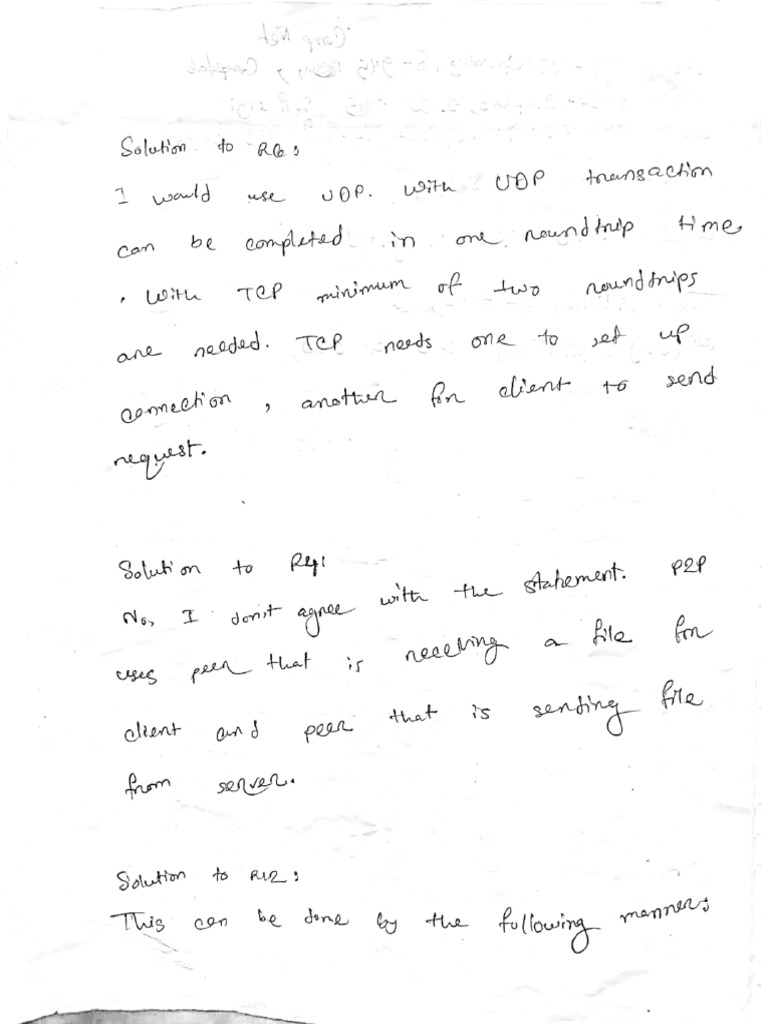 Solution to R6:
I would use UDP. With UDP transaction
can be completed in one roundtrip time.
. With TCP minimum of two roundtrips
are needed. TCP needs one to set up
connection, another for client to send
request.
Solution to R4:
No, I don't agree with the statement. P2P
uses peer that is receiving a file for
client and peer that is sending file
from server.
Solution to R12:
This can be done by the following manner: